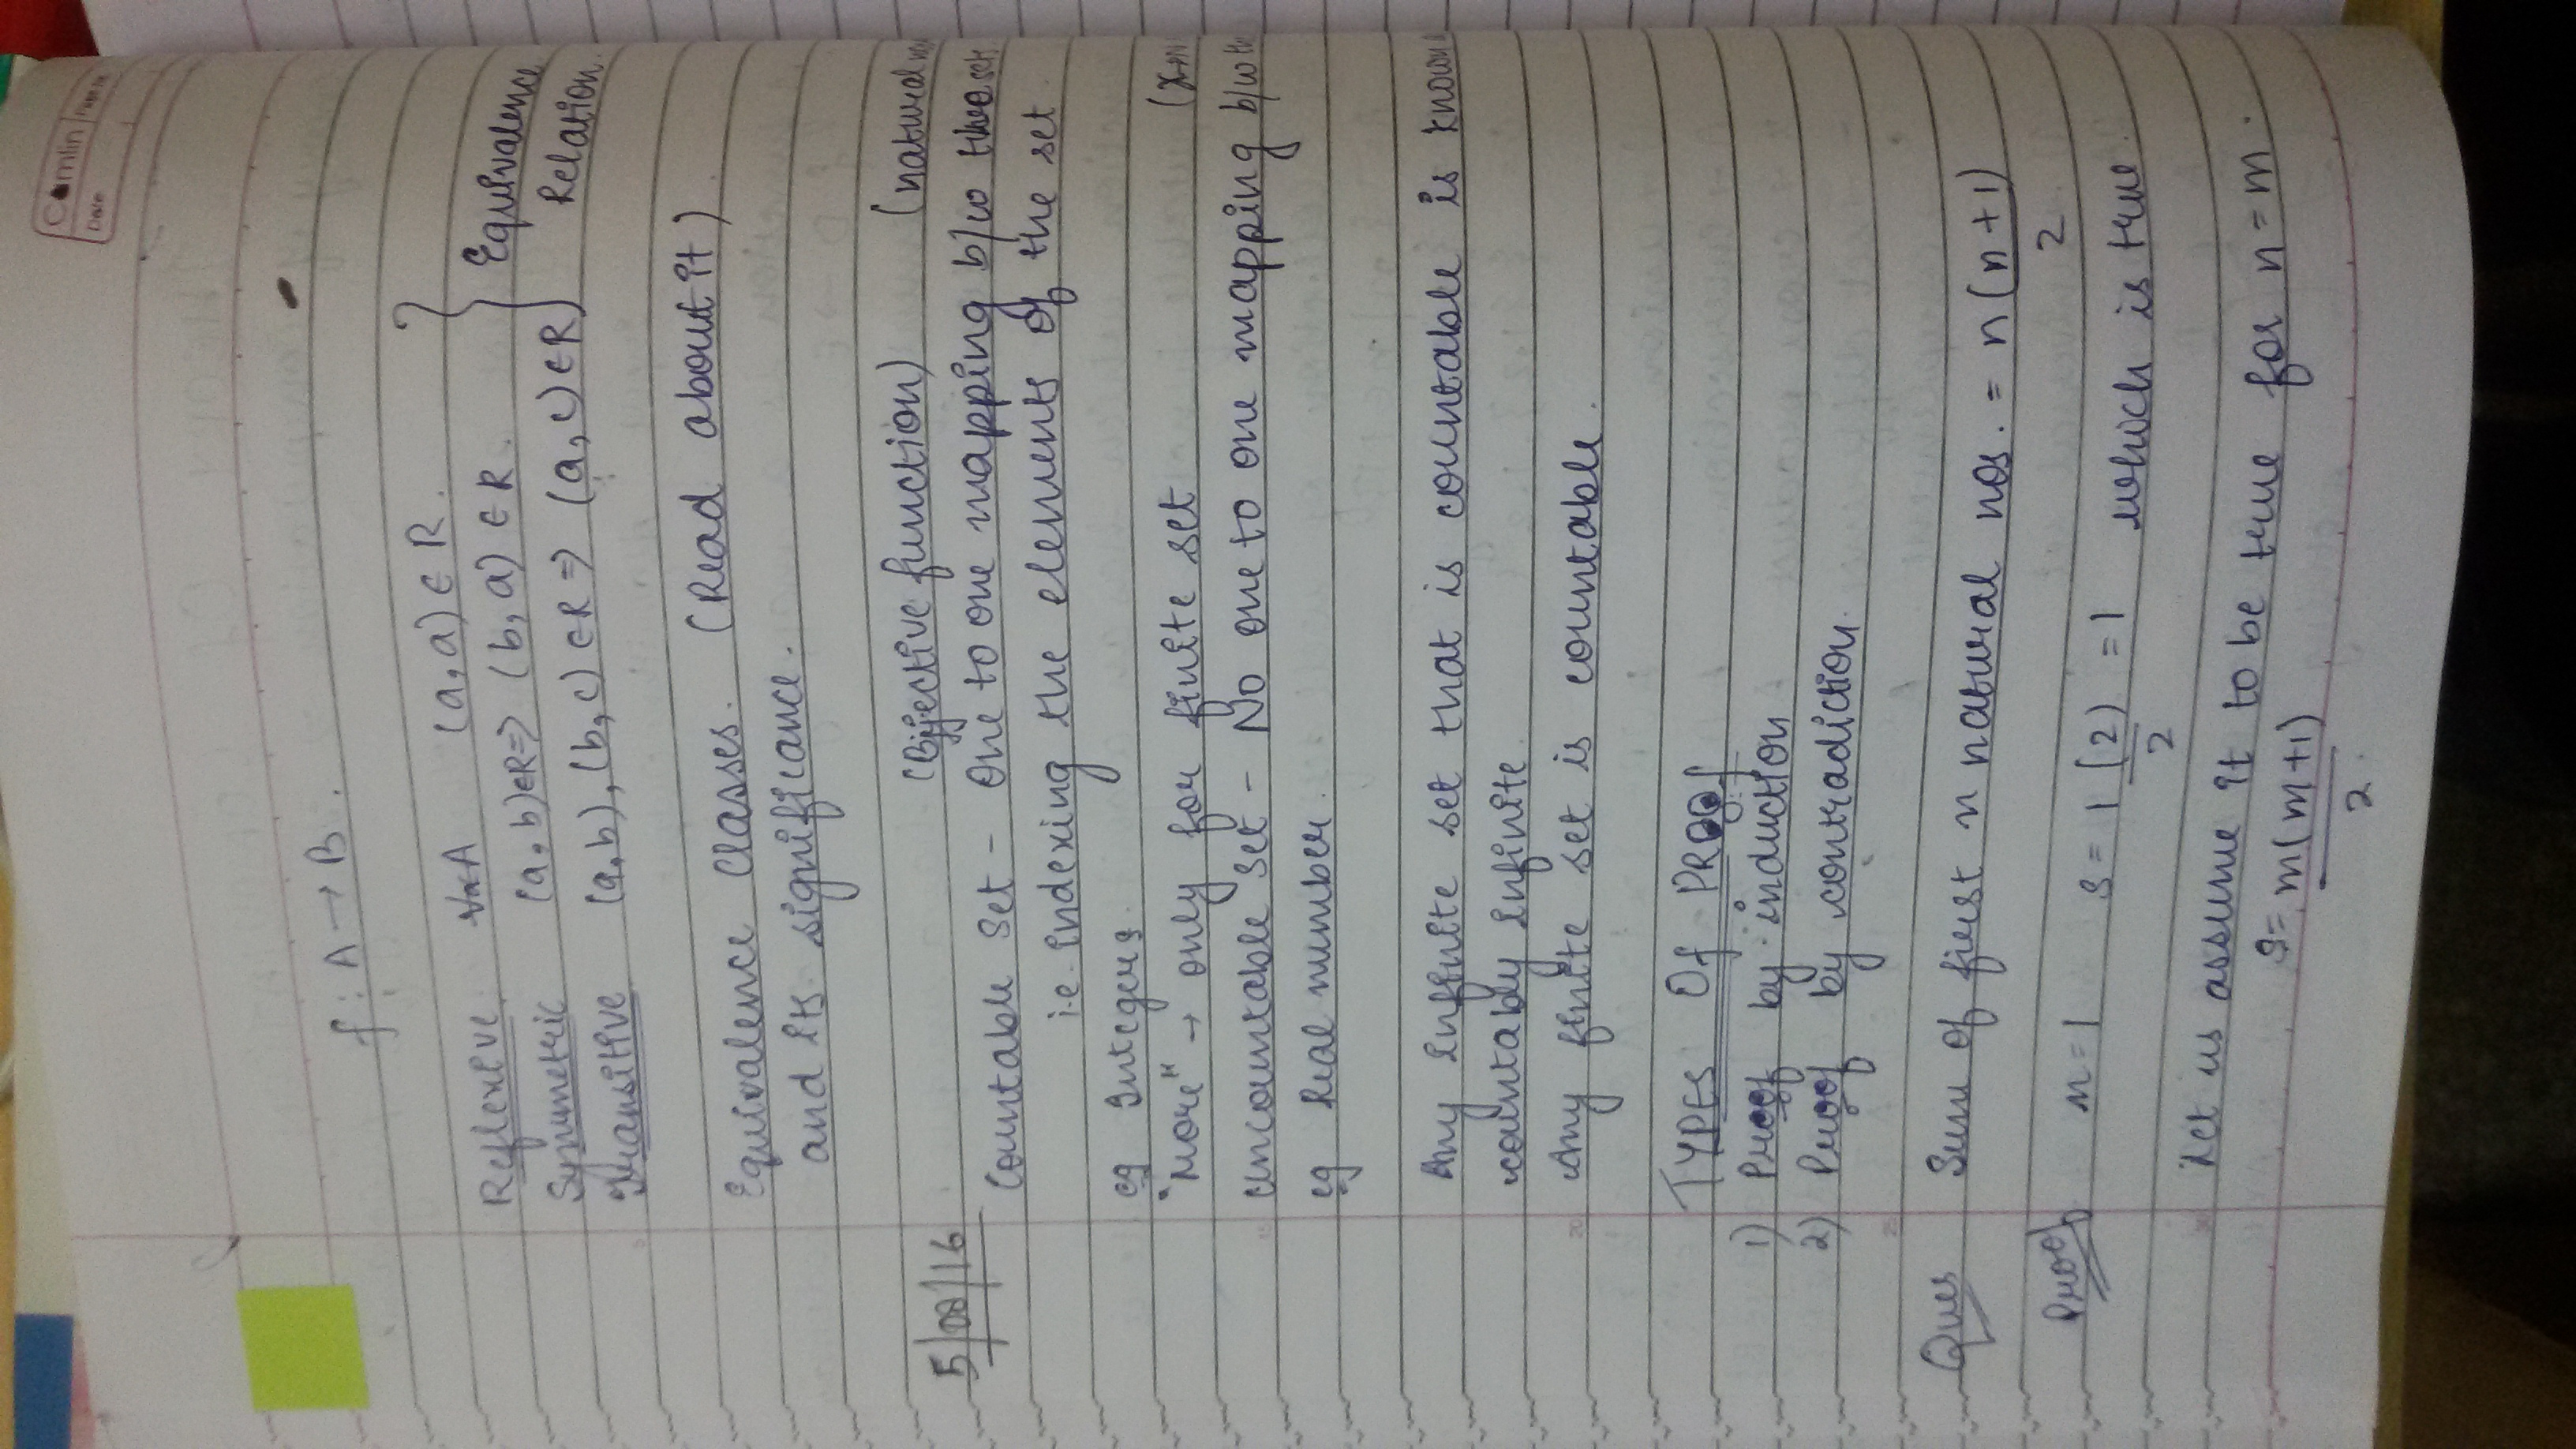 Camlin Page No.
Date
f : A → B .
Reflexive ∀a∈A (a,a) ∈ R .
Symmetric (a,b)∈R ⇒ (b,a) ∈ R .
Transitive (a,b), (b,c) ∈R ⇒ (a,c)∈R } Equivalence Relation.
Equivalence Classes. (Read about it)
and its significance.
(Bijective function) (natural
5/08/16
Countable set - One to one mapping b/w two sets
i.e. indexing the elements of the set
eg Integers
"More" → only for finite set
Uncountable set - No one to one mapping b/w
eg Real number.
Any infinite set that is countable is known
countably infinite.
Any finite set is countable.
TYPES Of PROOf
1) Proof by induction
2) Proof by contradiction.
Ques Sum of first n natural nos. = n(n+1)
2
Proof n=1 S= 1(2) =1 which is true.
2
Let us assume it to be true for n=m.
S= m(m+1)
2.